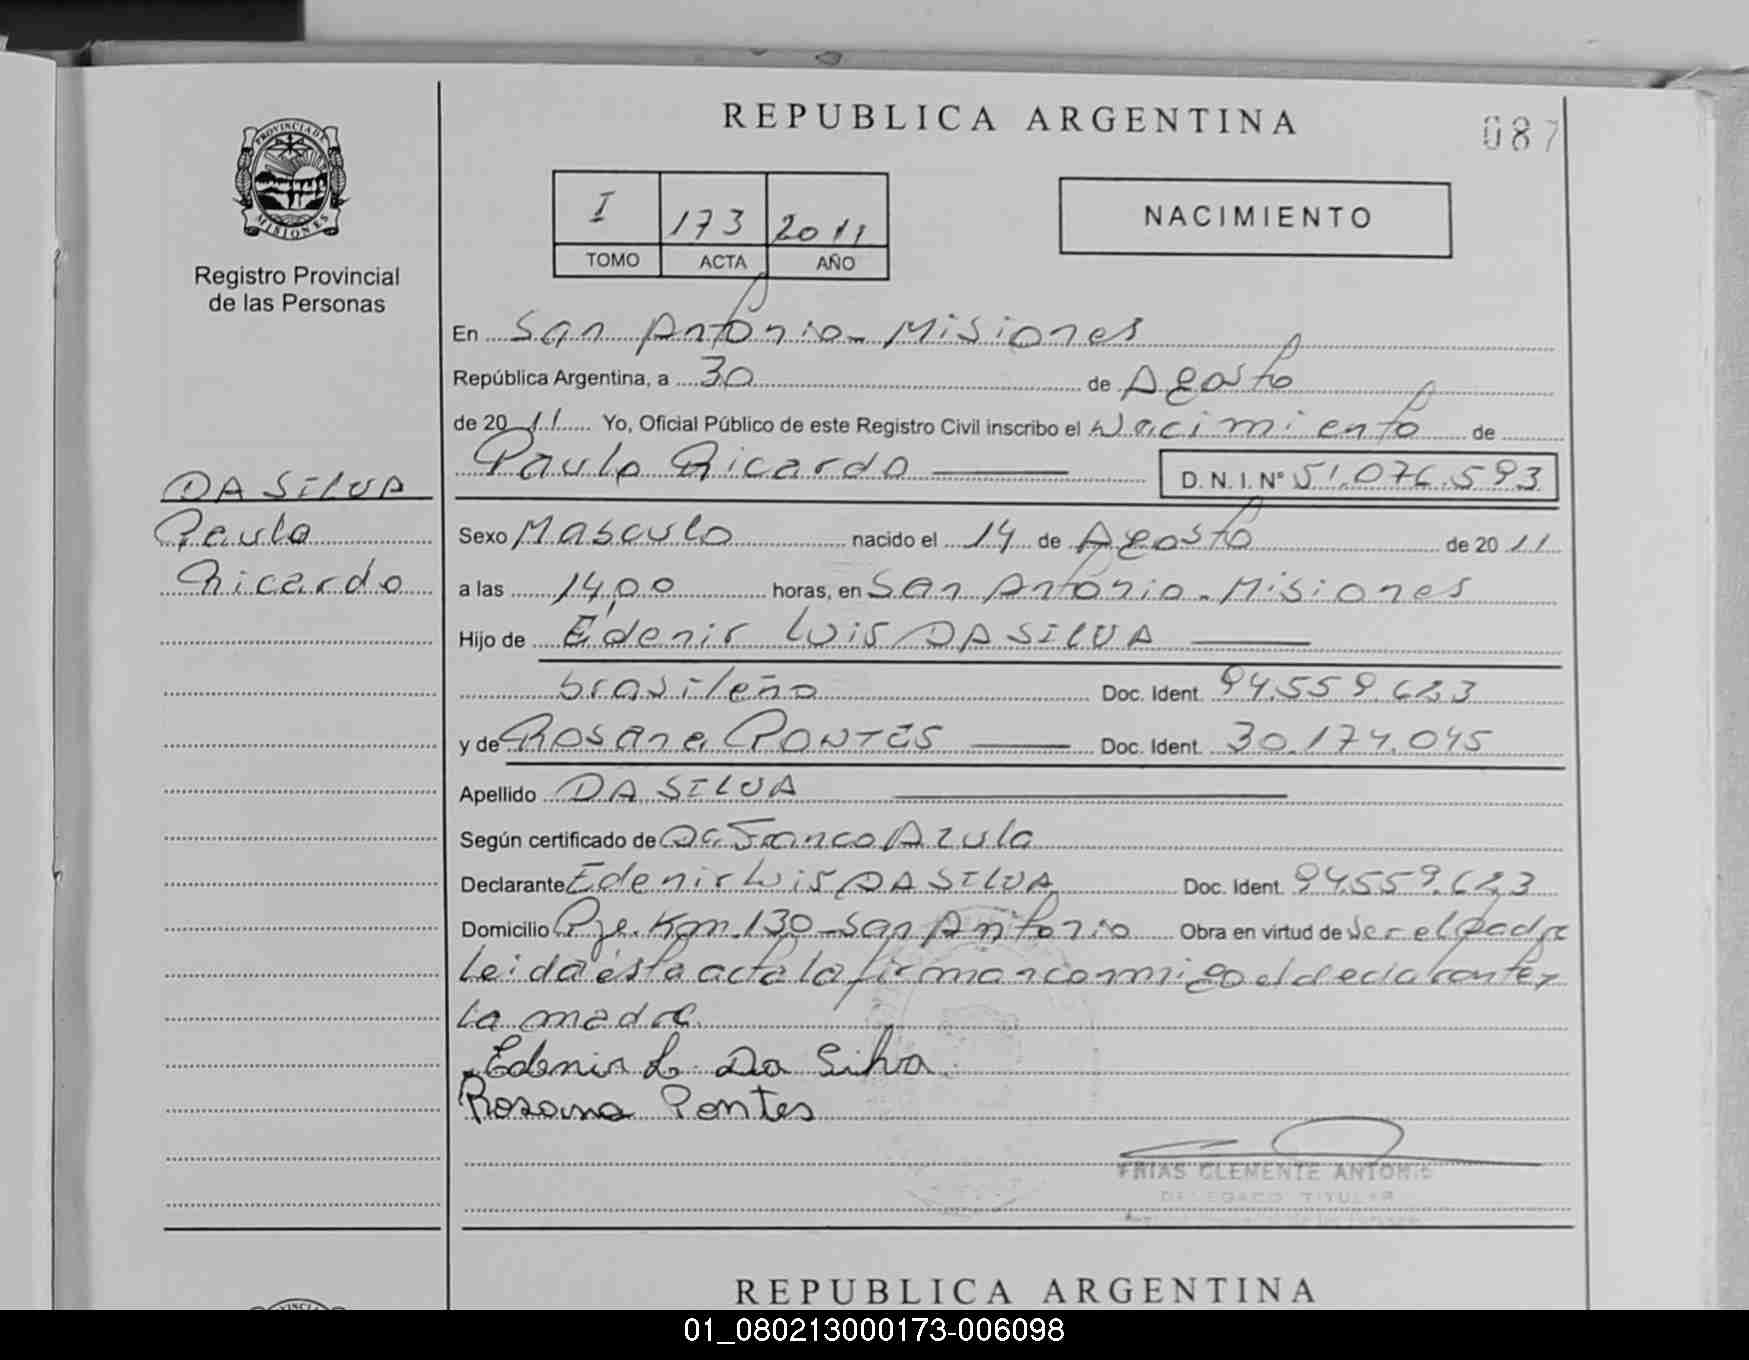 REPUBLICA ARGENTINA
087
PROVINCIA DE
MISIONES
Registro Provincial
de las Personas
I 173 2011
TOMO ACTA AÑO
NACIMIENTO
En San Antonio - Misiones
República Argentina, a 30 de Agosto
de 20 11 Yo, Oficial Público de este Registro Civil inscribo el Nacimiento de
Paulo Ricardo D. N. I. Nº 51.076.593
DA SILVA
Paulo
Ricardo
Sexo Masculo nacido el 14 de Agosto de 20 11
a las 14,00 horas, en San Antonio - Misiones
Hijo de Edenir Luis DA SILVA
brasileño Doc. Ident. 94.559.623
y de Rosane PONTES Doc. Ident. 30.174.045
Apellido DA SILVA
Según certificado de Dr. Franco Azula
Declarante Edenir Luis DA SILVA Doc. Ident. 94.559.623
Domicilio Pje. Km. 130 - San Antonio Obra en virtud de ser el padre
Leida ésta acta la firman conmigo el declarante y
la madre.
Edenir L. Da Silva
Rosana Pontes
FRIAS CLEMENTE ANTONIO
DELEGADO TITULAR
REPUBLICA ARGENTINA
01_080213000173-006098